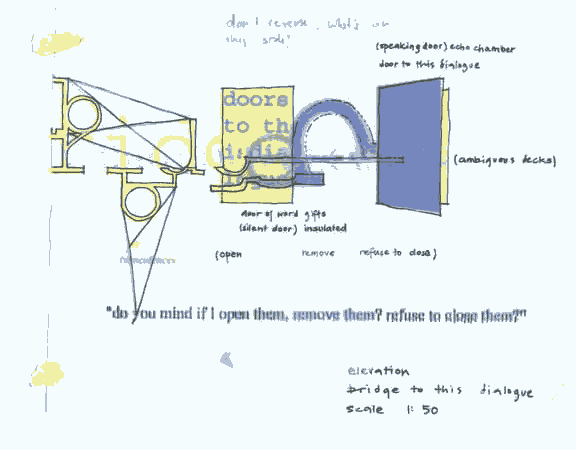 don't reverse. what's on
this side?
(speaking door) echo chamber
door to this dialogue
doors
to th
(ambiguous decks)
door of word gifts
(silent door) insulated
(open remove refuse to close)
"do you mind if I open them, remove them? refuse to close them?"
elevation
bridge to this dialogue
scale 1:50